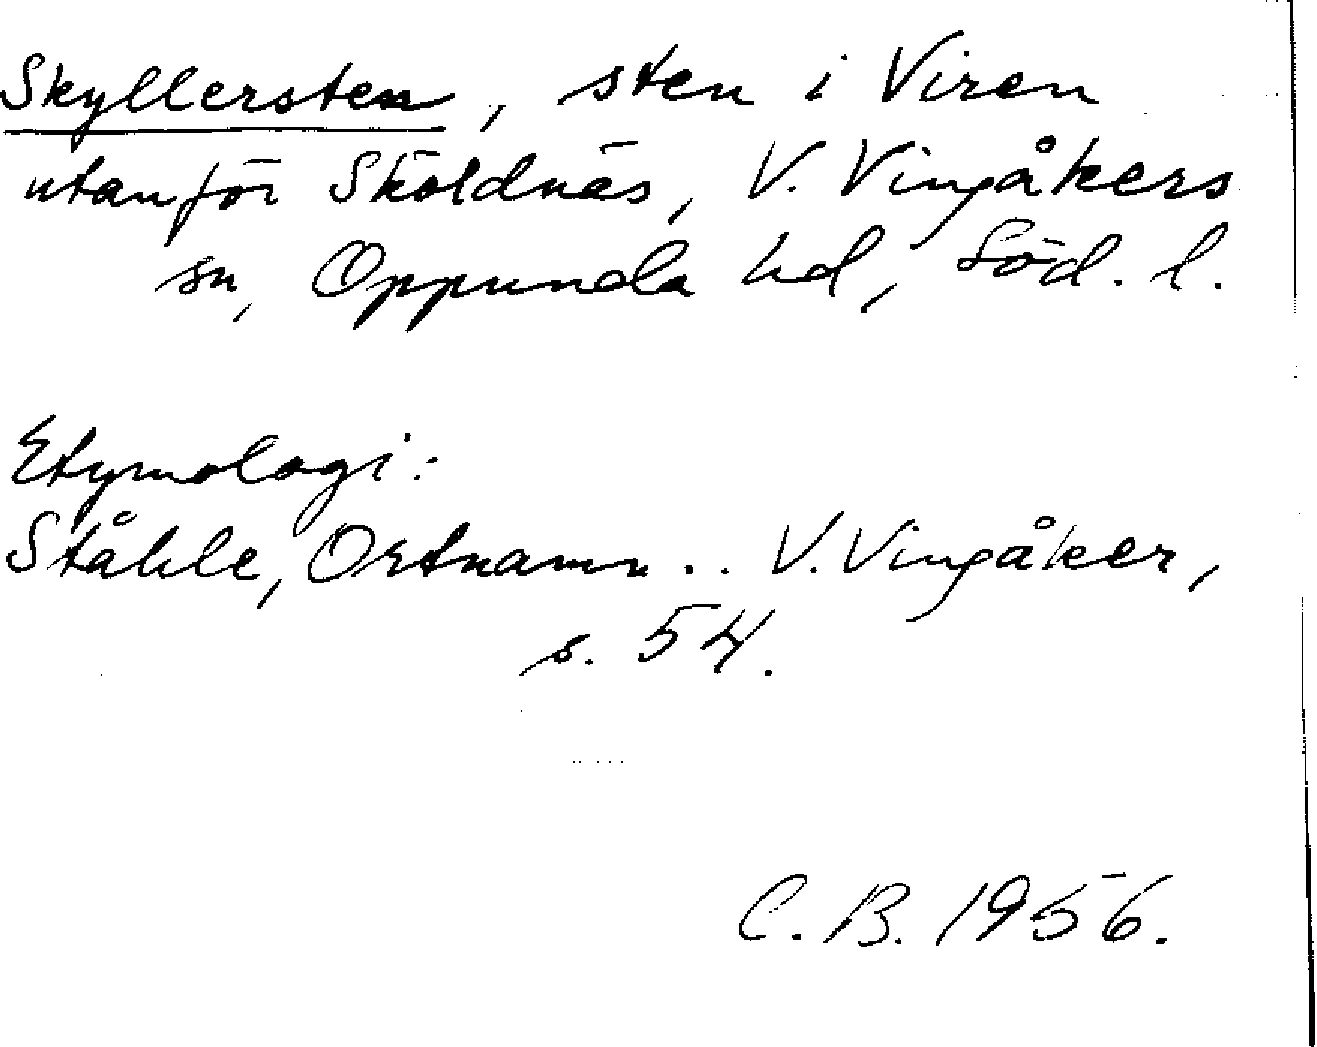 Skyllersten, sten i Viren
utanför Sköldnäs, V. Vingåkers
sn, Oppunda hd, Söd. l.
Etymologi:
Ståhle, Ortnamn .. V. Vingåker,
s. 54.
C. B. 1956.